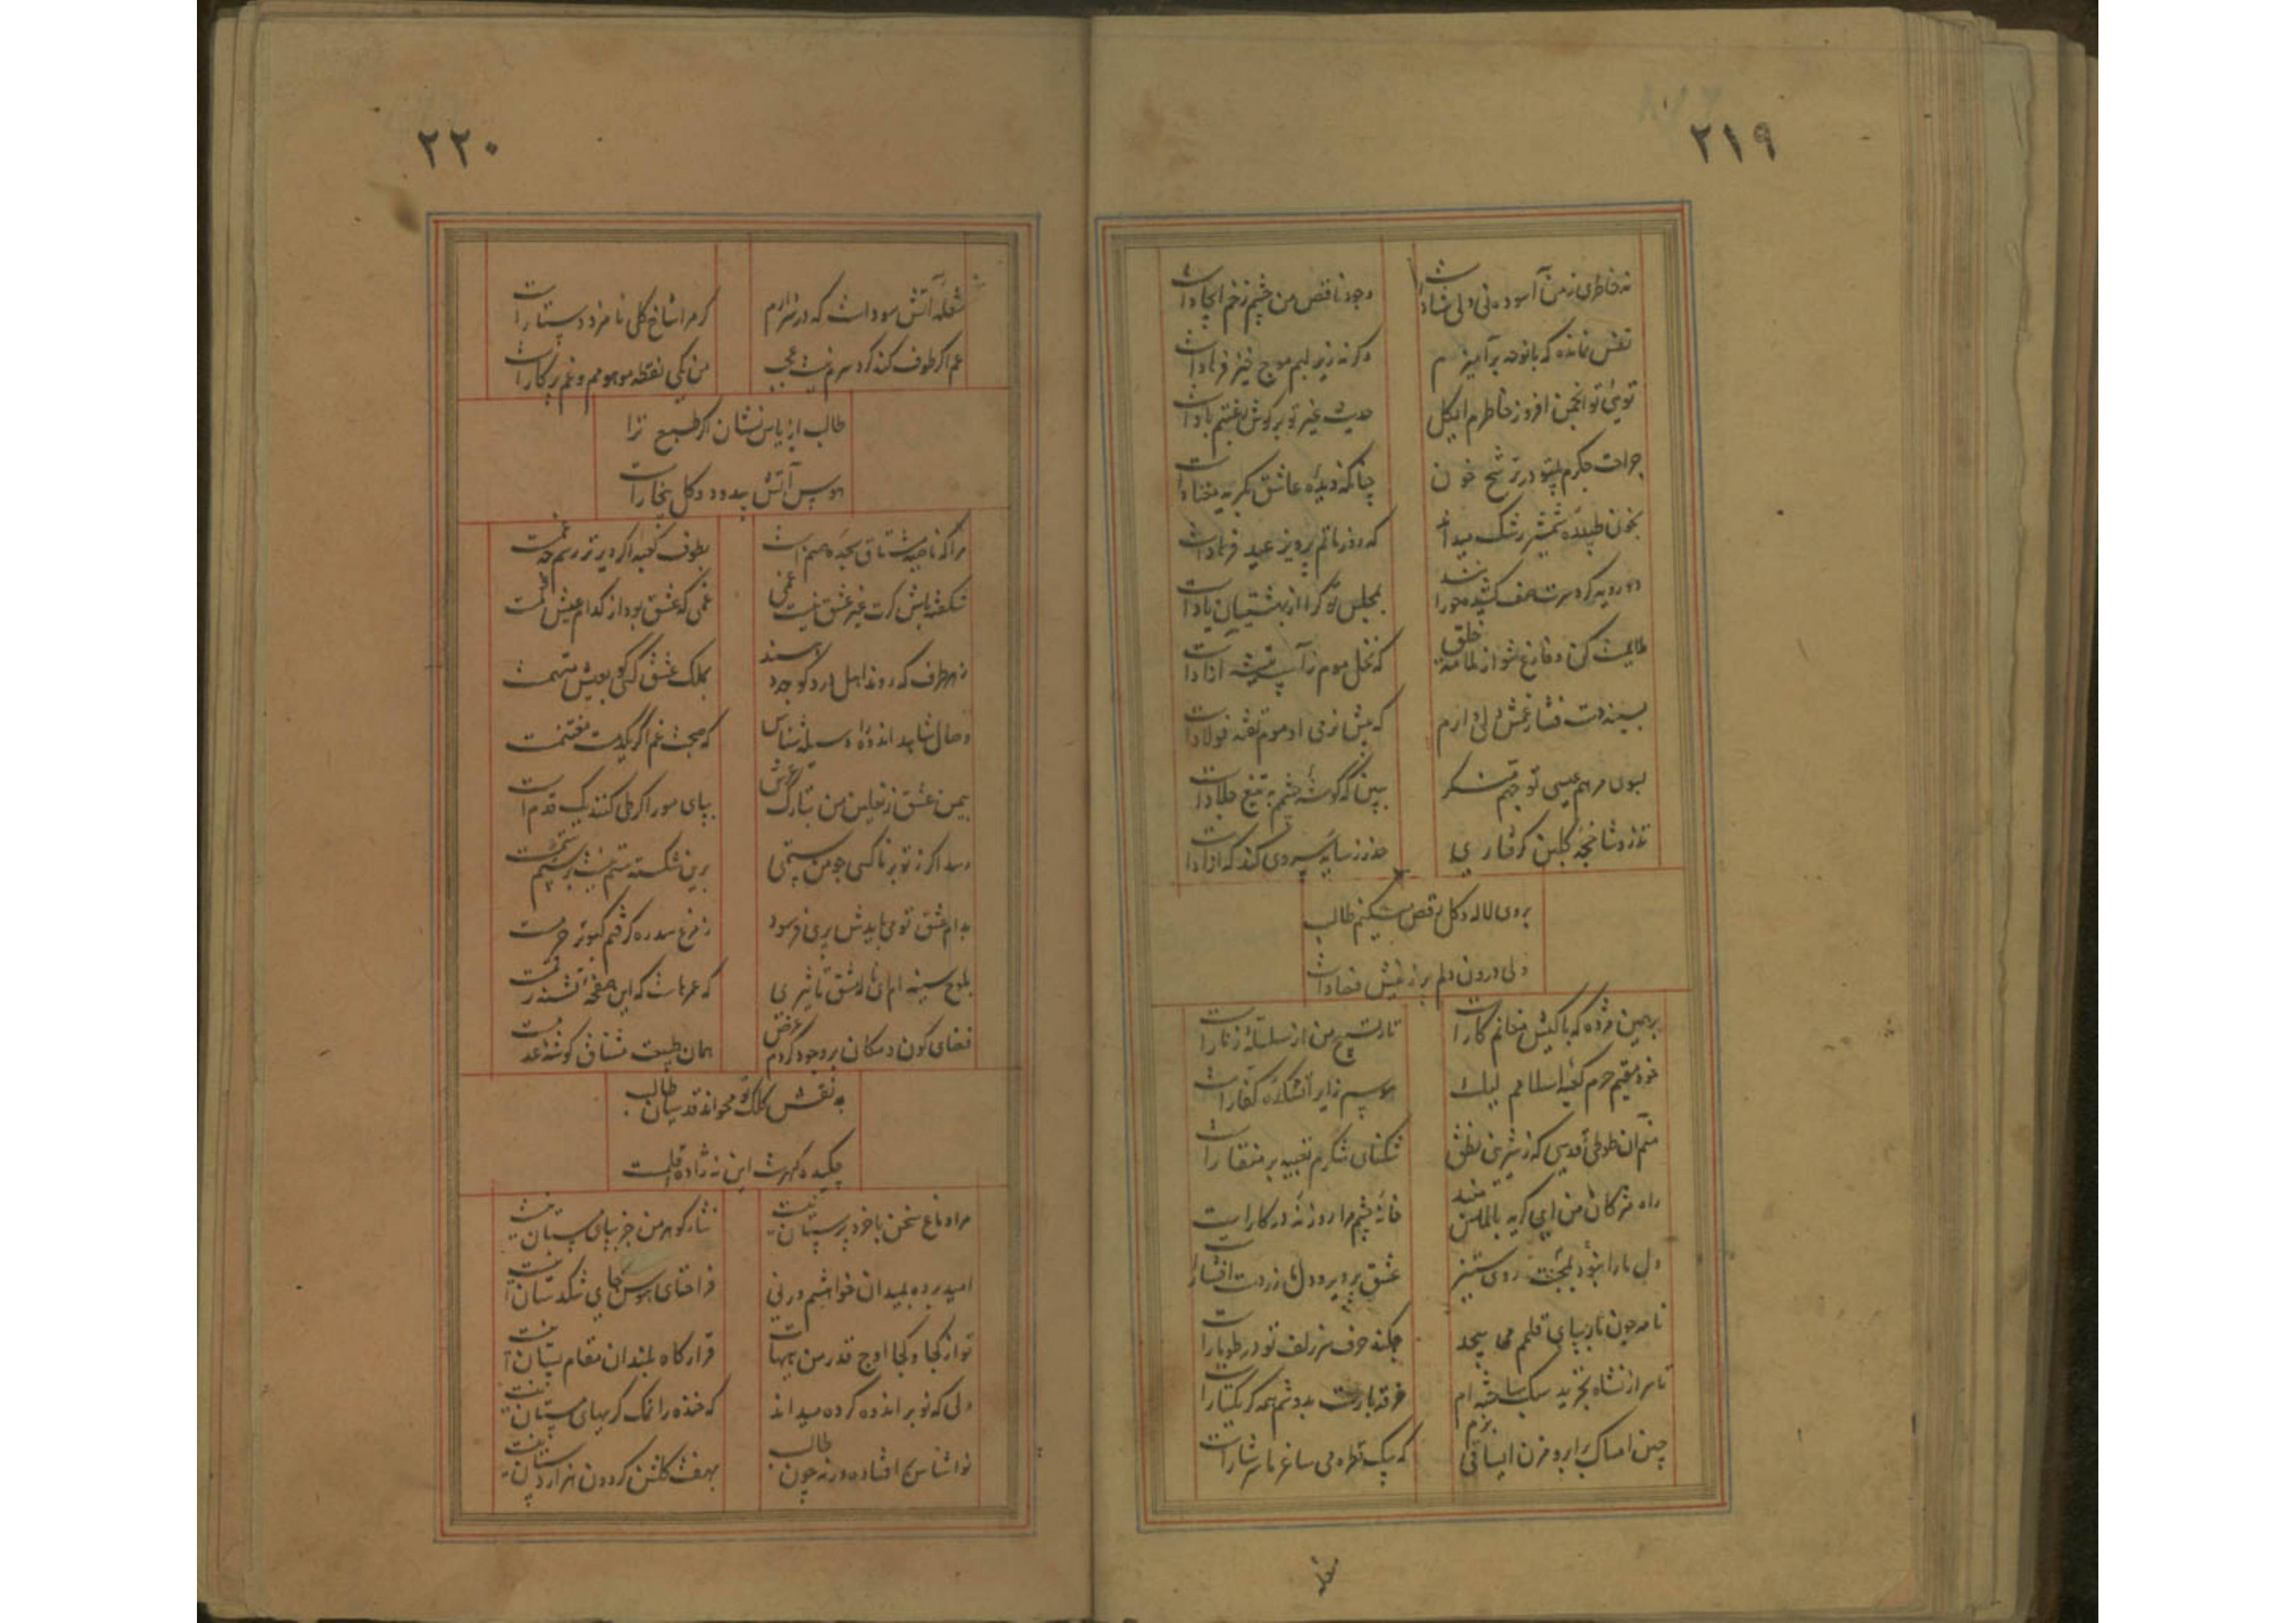 ۲۱۹
نه خاطری ز من آسوده نی دلی شاد است
وجود ناقص من چشم زخم ایجاد است
نفس نمانده که با نوحه برآمیزم
وگرنه زیر لبم موج خیز فریاد است
توئی تو انجمن افروز خاطرم ای گل
حدیث غیر تو بر گوش رغبتم باد است
جراحت جگرم بیتو در ترشح خون
چنانکه دیده عاشق بگریه معتاد است
بخون طپیده شمشیر رشک میداند
که روز ماتم پرویز عید فرهاد است
دو رویه گرد سرت صف کشیده حورا
بمجلس تو کرا از بهشتیان یاد است
ملایمت کن و فارغ شو از ملامت خلق
که نخل موم ز آسیب تیشه آزاد است
بسینه دست فشار غمش دلی دارم
که پیش نرمی او موم تفته فولاد است
بسوی مرهم عیسی تو چشم
ببین که گوشه چشمم به تیغ جلاد است
تذرو شاخچه گلبن گرفتاری
حذر ز سایه سروی کند که آزاد است
بروی لاله و گل رقص میکنم طالب
ولی درون دلم پر ز نیش فصاد است
برهمن مژده که با کیش مغانم کار است
تار تسبیح من از سلسله زنار است
خود مقیم حرم کعبه اسلامم لیک
هوسم زایر آتشکده کفار است
منم آن طوطی قدسی که ز شیرینی نطق
تنگنای شکرم تعبیه بر منقار است
راه مژگان من ای گریه بالماس مبند
خانه چشم مرا روزنه در کار است
دل ما را نبود
عشق پرویر و دل ما زر دست افشار است
نامه چون مار بپای قلمم می پیچد
چکند حرف سر زلف تو در طومار است
تا سر از نشاه تجرید سبک ساخته ام
خرقه بار است بدوشم همه گر یکتار است
چین امساک بر ابرو مزن ای ساقی بزم
که بیک قطره می ساغر ما سرشار است
شعله
۲۲۰
شعله آتش سودا است که در سر دارم
گر مرا شاخ گلی نامزد دستار است
غم اگر طوف کند گرد سرم نیست عجب
من یکی نقطه موهومم و غم پرگار است
طالب از یاس نشان گر طبع ترا
هوس آتش بیدود و گل بیخار است
مرا که ناصیه مشتاق سجده صنم است
بطوف کعبه اگر دیرتر رسم چه غم است
شگفته باش گرت غیر عشق نیست غمی
غمی که عشق بود از کدام عیش کم است
ز هر طرف که روند اهل درد کوچه دهند
بملک عشق کسی کو بعیش متهم است
وصال شاهد اندوه را وسیله شناس
که صحبت غم اگر یکدمست مغتنم است
بیمن عشق ز نعلین من بتارک عرش
بپای مور اگر طی کنند یک قدم است
رسد اگر ز تو بر ناکسی چو من ستمی
برین شکسته ستم نیست بر ستم ستم است
بدام عشق تو می بایدش پری فرسود
ز مرغ سدره گرفتم کبوتر حرم است
بلوح سینه ام ای ناله مشق تاثیری
که عمرهاست که این صفحه تشنه رقم است
فضای کون و مکان بر وجود کردم عرض
همان طبیعت مشتاق گوشه عدم است
به نقش کلک تو محو اند قدسیان طالب
چکیده گهرست این نه زاده قلم است
مرا دماغ سخن با خرد پرستان نیست
نثار گوهر من جز بپای مستان نیست
امید برده بمیدان خواهشم ورنی
فراخنای هوس جای تنگدستان نیست
تو از کجا و کجا اوج قدر من هیهات
قرارگاه بلندان مقام پستان نیست
دلی که خو بر اندوه کرده میداند
که خنده را نمک گریهای مستان نیست
نواشناس کم افتاده ورنه چون طالب
بهفت گلشن گردون هزار دستان نیست